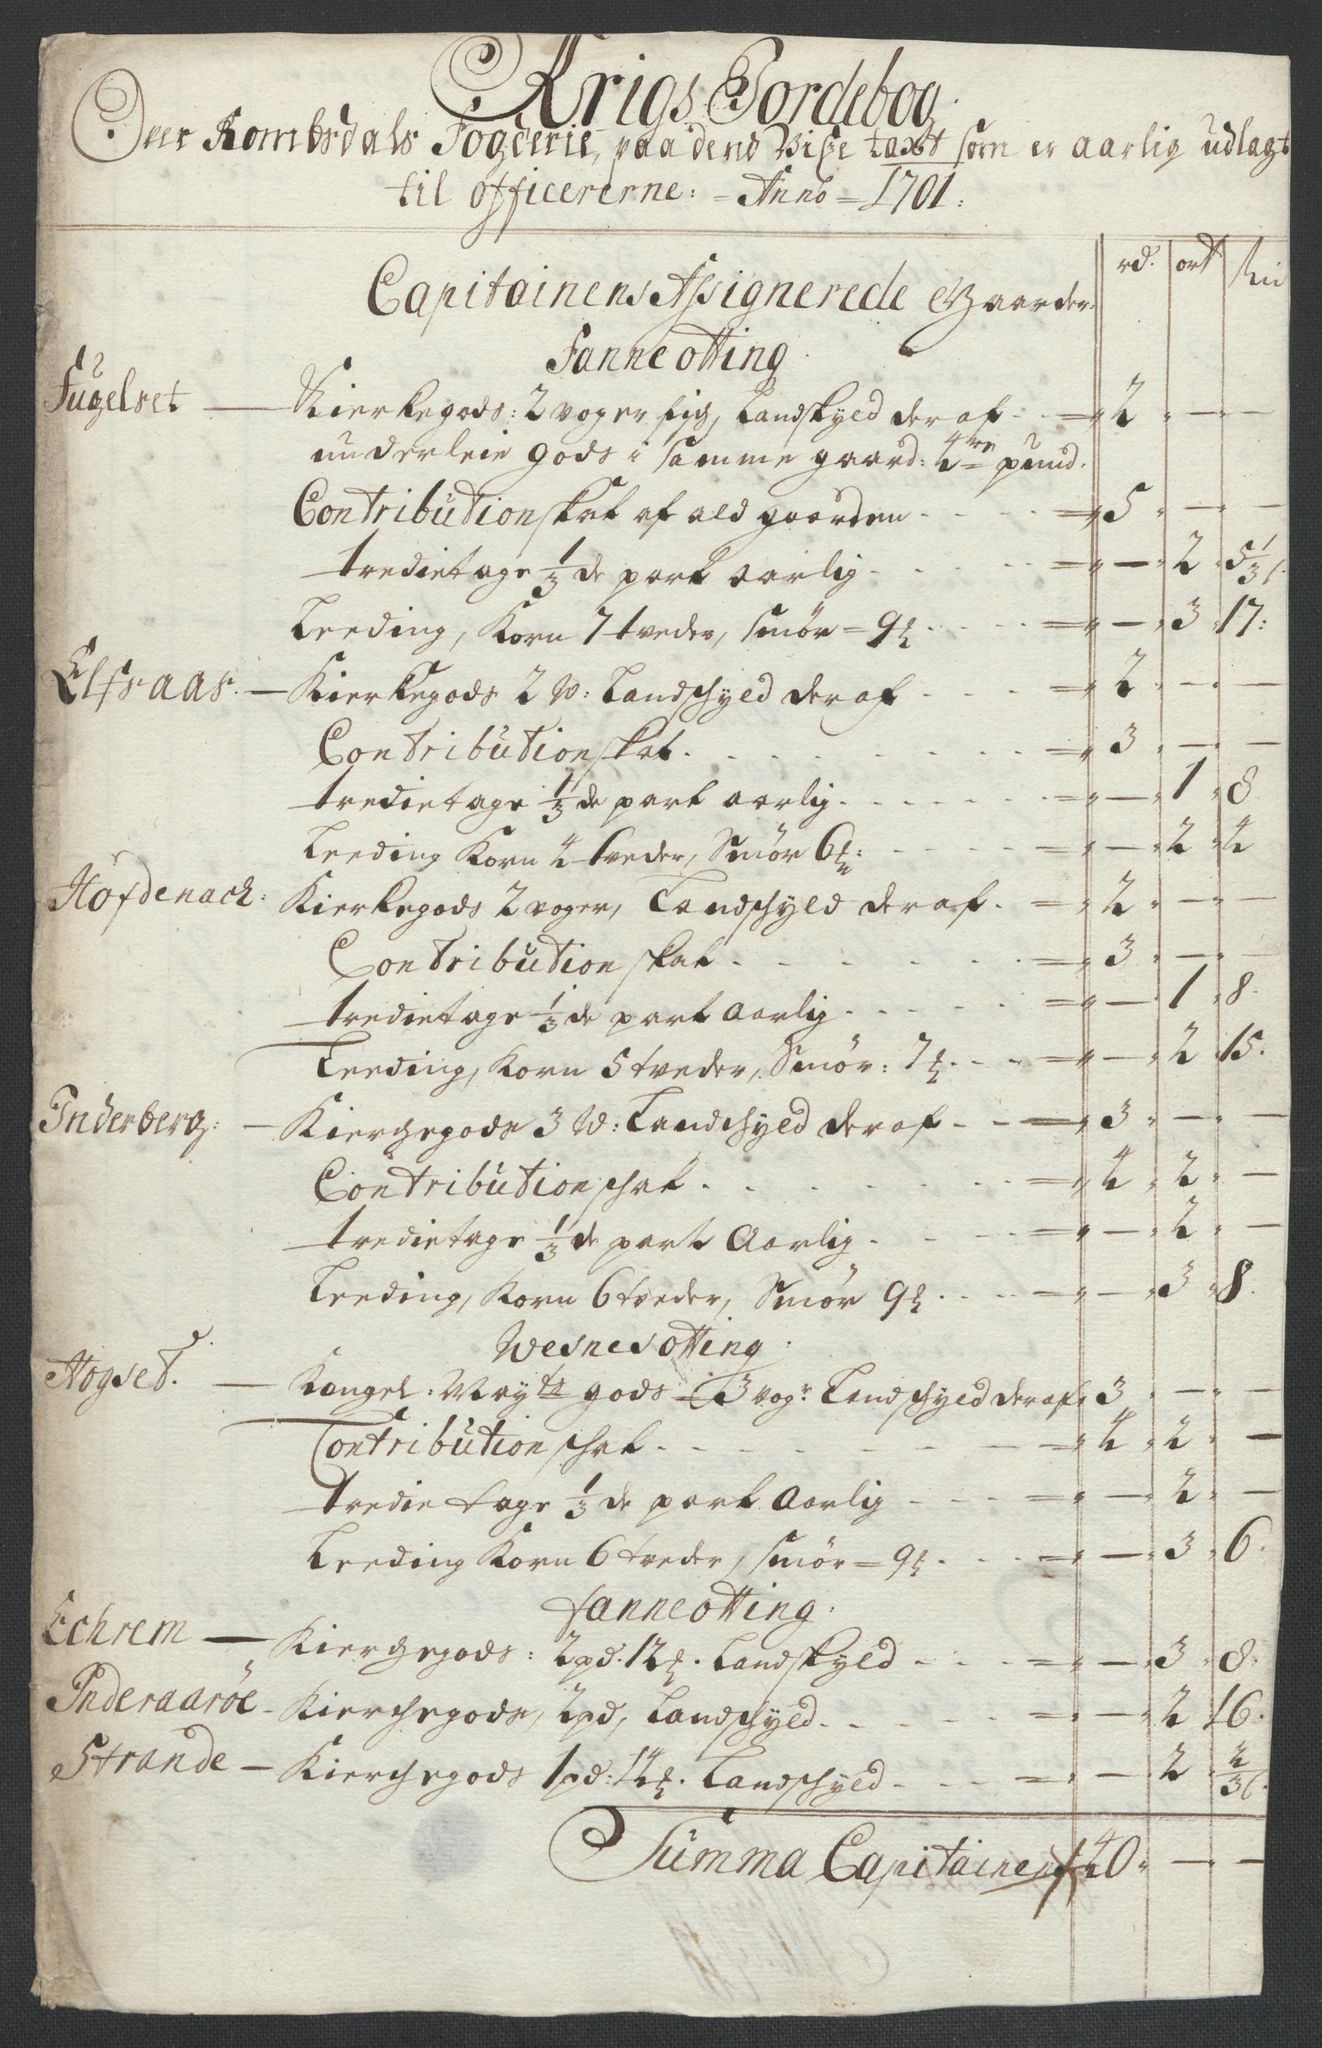 Krigs Jordebog
Over Rombsdals Fogderie, paa dend Visse taxt som er aarlig udlagt
til officererne: Anno 1701:
rd. ort
Capitainens Assignerede Gaarder
Fanne otting
Fugelset — Kierkegods: 2 voger fisk, Landskyld deraf 2 — —
underleie gods i samme gaard: 2re pund.
Contribution skat af ald gaarden 5 — —
tredietage 1/3 de part aarlig — 2 5 1/3
Leeding, Korn 7 tveder, smør 9 — 3 17:
Elfsaas — Kierkegods 2 W: Landschyld deraf 2 — —
Contribution skat 3 — —
tredietage 1/3 de part aarlig — 1 8
Leeding Korn 4 tveder, Smør 6 — 2 4
Höfdenach: Kierkegods 2 voger, Landschyld deraf 2 — —
Contribution skat 3 — —
tredietage 1/3 de part Aarlig — 1 8
Leeding, Korn 5 tveder, Smør: 7 — 2 15.
Inderberg: — Kierchegods 3 W: Landschyld deraf 3 — —
Contribution schat 4 2 —
tredietage 1/3 de part Aarlig — 2 —
Leeding, Korn 6 tveder, Smør 9 — 3 8
Wesnes otting
Hogset. — Kongel: gods 3 vog: Landschyld deraf 3 — —
Contribution schat 4 2 —
tredie tage 1/3 de part Aarlig — 2 —
Leeding Korn 6 tveder, smør 9 — 3 6
fanne otting
Echrem — Kierchegods: 2 pd. 12. Landskyld — 3 8
Inderaaröe — Kierchegods, 2 pd, Landschyld — 2 16
Strande — Kierchegods 1 pd: 14. Landschyld — 2 2/3
Summa Capitainens 40 — —